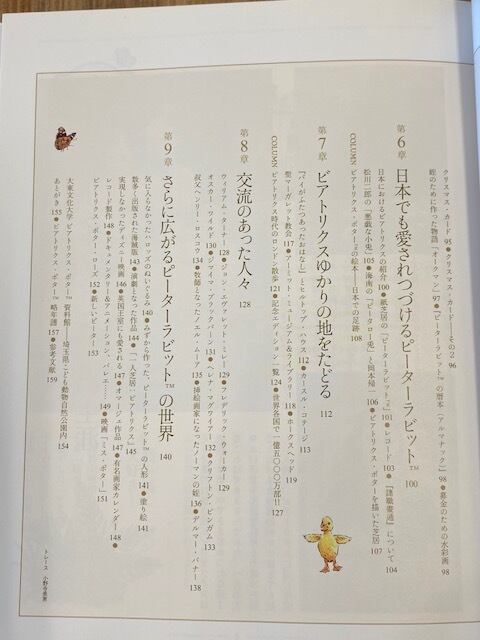 クリスマス・カード 95●クリスマス・カード――その2 96
姪のために作った物語『オークマン』 97●『ピーターラビット™の暦本（アルマナック）』 98●募金のための水彩画 98
第6章 日本でも愛されつづけるピーターラビット™ 100
日本におけるビアトリクスの紹介 100●紙芝居の『ピーターラビット™』 101●レコード 103●『諸職畫通』について 104
松川二郎の「悪戯な小兎」 105●海南の「ピータロー兎」と岡本帰一 106●ビアトリクス・ポターを描いた芝居 107
COLUMN ビアトリクス・ポター™の絵本―日本での足跡 108
第7章 ビアトリクスゆかりの地をたどる 112
『パイがふたつあったおはなし』とヒルトップ・ハウス 112●カースル・コテージ 113
聖マーガレット教会 117●アーミット・ミュージアム&ライブラリー 118●ホークスヘッド 119
COLUMN ビアトリクス時代のロンドン散歩 121●記念エディション一覧 124●世界各国で一億五〇〇〇万部!! 127
第8章 交流のあった人々 128
ウィリアム・ターナー 128●ジョン・エヴァレット・ミレー 129●フレデリック・ウォーカー 129
オスカー・ワイルド 130●ジマイマ・ブラックバーン 131●ヘレナ・マグワイアー 132●クリフトン・ビンガム 133
叔父ヘンリー・ロスコウ 134●牧師となったノエル・ムーア 135●挿絵画家になったノーマンの姪 136●デルマー・バナー 138
第9章 さらに広がるピーターラビット™の世界 140
気に入らなかったハロッズのぬいぐるみ 140●みずから作ったピーターラビット™の人形 141●塗り絵 141
数多く出版された海賊版 143●演劇となった作品 144●「一人芝居:ビアトリクス」 145
実現しなかったディズニー映画 146●英国王室にも愛される 147●オマージュ作品 147●有名画家カレンダー 148●
レコード製作 148●ドキュメンタリー&アニメーション、バレエ…… 149●映画「ミス・ポター」 151
ビアトリクス・ポター・ローズ 152●新しいピーター 153
大東文化大学 ビアトリクス・ポター™資料館――埼玉県こども動物自然公園内 154
あとがき 155●ビアトリクス・ポター™略年譜 157●参考文献 159